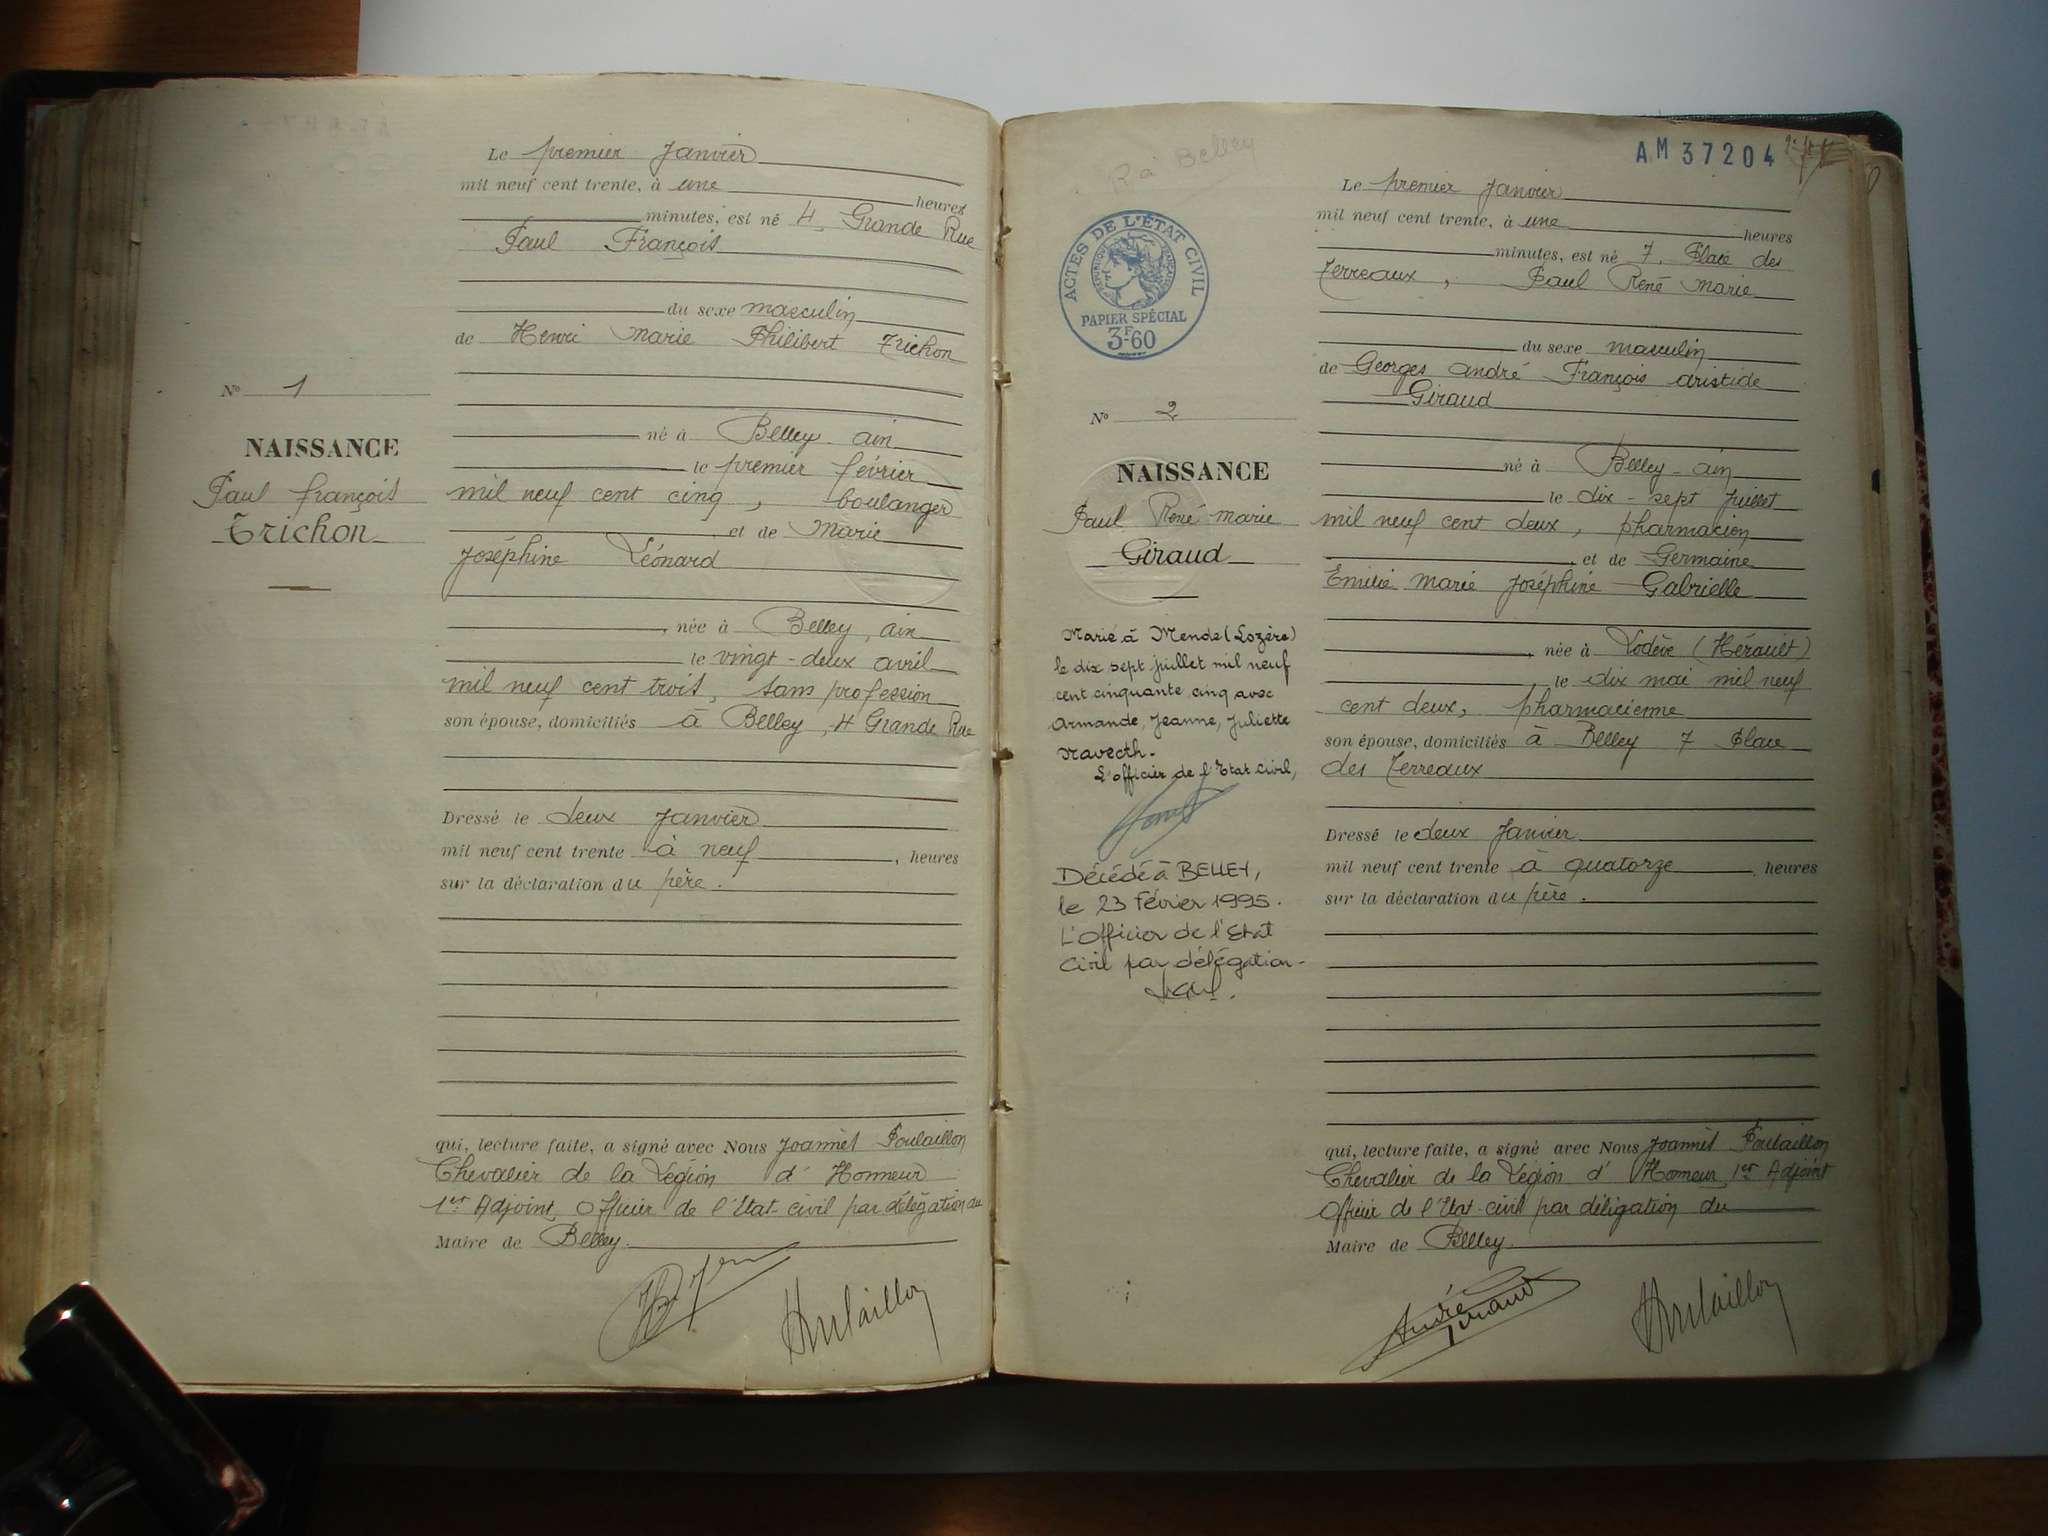 Le premier Janvier
mil neuf cent trente, à une heures
minutes, est né 4, Grande Rue
Paul François
du sexe masculin
de Henri Marie Philibert Trichon
né à Belley ain
le premier février
mil neuf cent cinq, boulanger
et de Marie
Joséphine Léonard
, née à Belley, ain
le vingt-deux avril
mil neuf cent trois, sans profession
son épouse, domiciliés à Belley, 4 Grande Rue
Dressé le deux Janvier
mil neuf cent trente à neuf, heures
sur la déclaration du père.
qui, lecture faite, a signé avec Nous Joannès Poulaillon
Chevalier de la Légion d'Honneur
1er Adjoint, Officier de l'Etat-civil par délégation du
Maire de Belley.
Poulaillon
No 1
NAISSANCE
Paul françois
Trichon
AM 37204
R à Belley
ACTES DE L'ÉTAT CIVIL
RÉPUBLIQUE FRANÇAISE
PAPIER SPÉCIAL
3F60
No 2
NAISSANCE
Paul René Marie
Giraud
Marié à Mende (Lozère)
le dix sept juillet mil neuf
cent cinquante cinq avec
Armande, Jeanne, Juliette
L'officier de l'Etat Civil,
Décédé à BELLEY,
le 23 Février 1995.
L'Officier de l'Etat
Civil par délégation-
Le premier Janvier
mil neuf cent trente, à une heures
minutes, est né 7, Place des
Terreaux, Paul René Marie
du sexe masculin
de Georges André François Aristide
Giraud
né à Belley-ain
le dix-sept Juillet
mil neuf cent deux, pharmacien
, et de Germaine
Emilie Marie Joséphine Gabrielle
, née à Lodève (Hérault)
, le dix mai mil neuf
cent deux, pharmacienne
son épouse, domiciliés à Belley 7 Place
des Terreaux
Dressé le deux Janvier
mil neuf cent trente à quatorze, heures
sur la déclaration du père.
qui, lecture faite, a signé avec Nous Joannès Poulaillon
Chevalier de la Légion d'Honneur, 1er Adjoint
Officier de l'Etat-civil par délégation du
Maire de Belley.
André Giraud
Poulaillon